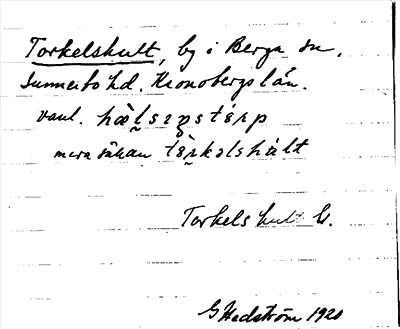 Torkelshult, by i Berga sn,
Sunnerbo hd. Kronobergs län.
vanl. hæ̀lsıŋstórp
mera sällan tòrkəlshùlt
Torkels hult G.
G Hedström 1920